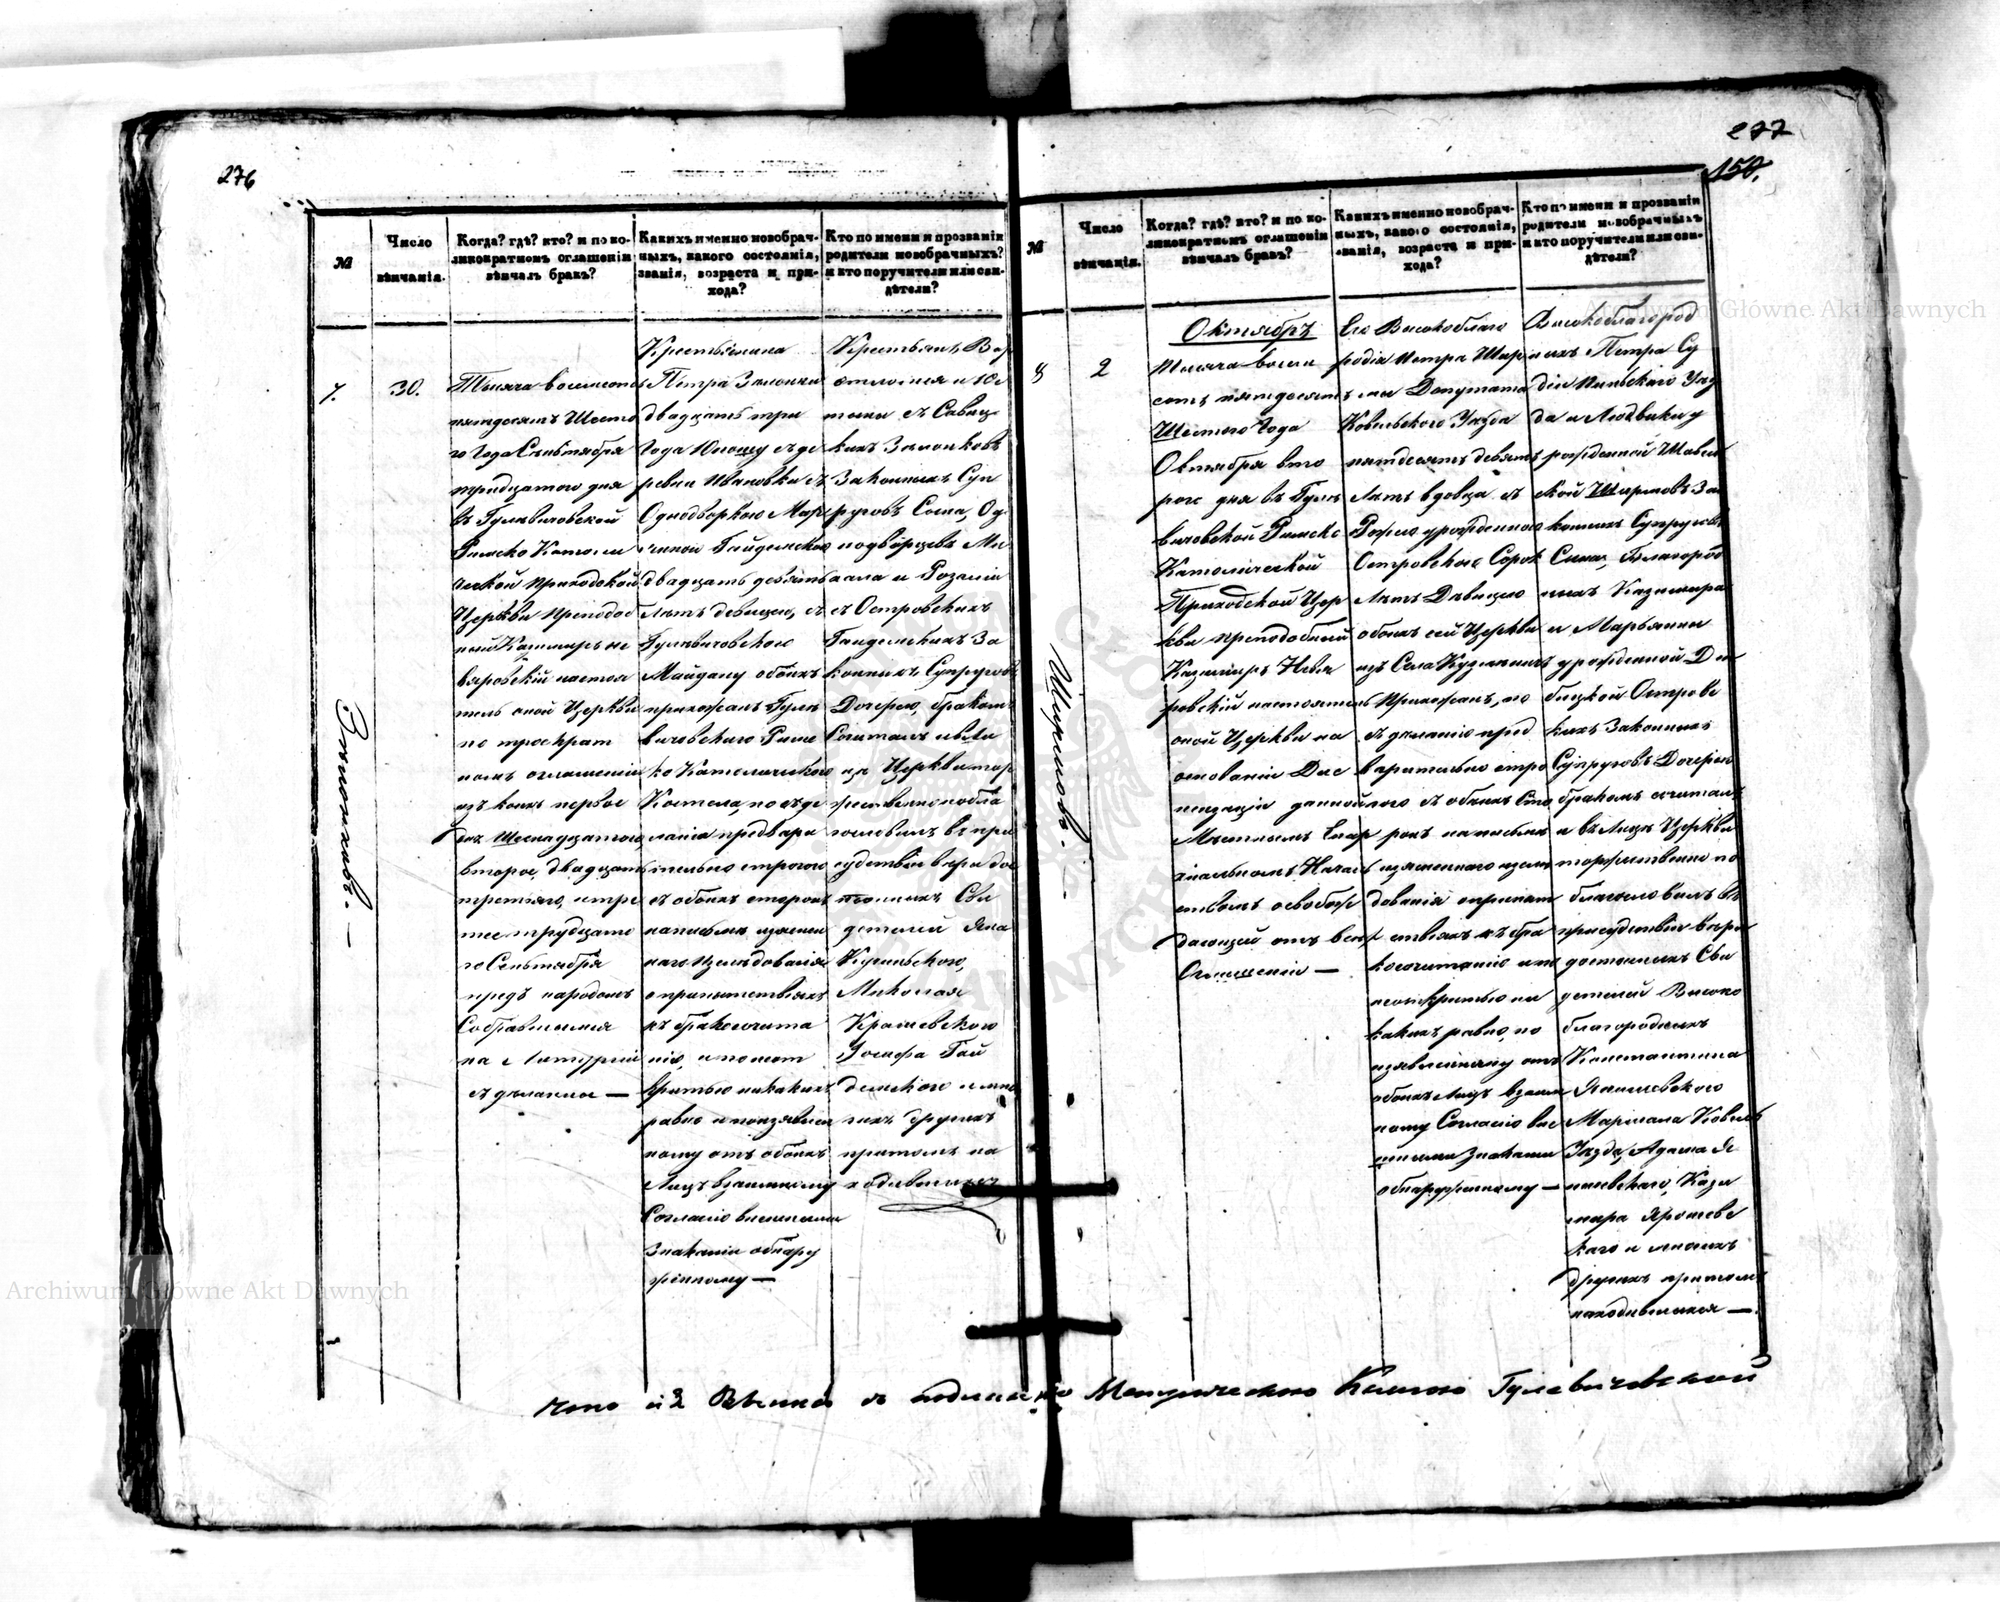 276
№
Число
вѣнчанія.
Когда? гдѣ? кто? и по ко-
ликократномъ оглашеніи
вѣнчалъ бракъ?
Какихъ именно новобрач-
ныхъ, какого состоянія,
званія, возраста и при-
хода?
Кто по имени и прозванію
родители новобрачныхъ?
и кто поручители или сви-
дѣтели?
7.
30.
Зтонковъ. —
Тысяча восемсотъ
пятдесятъ Шесто
го Года Сентября
тридцатого дня
въ Гулевичовской
Римско Католи
ческой приходской
Церкви преподоб
ный Казимиръ Не
вяровскій настоя
тель оной Церкви
по троекрат
номъ оглашеніи
изъ коихъ первое
Шеснадцатого,
второе, двадцать
третяго, и тре
тее трыдцато
го Сентября
предъ народомъ
Собравшимся
на Литургіи
сдѣланном —
Крестьянина
Петра
двадцать три
Года Юношу съ де
ревни Ивановки съ
Однодворкою Мар
Гайдамскою
двадцать девять
лѣтъ девицею, съ
Гулевичовского
Майдану обоихъ
прихожанъ Гуле
вичовского Римс
ко Католического
Костела, по сдѣ
ланіи предвари
тельно строгого
съ обоихъ сторонъ
на письмѣ изяснен
наго изслѣдованія
о препятствіяхъ
къ бракосочета
нію, и по неот
крытью никакихъ
равно и по изявлен
ному отъ обоихъ
Лицъ взаимному
Согласію внешними
Знаками обнару
женному —
Крестьянъ Вар
и Юс
тыны съ Савиц
кихъ
Законныхъ Суп
руговъ Сына, Од
нодворцевъ Ми
хала и Розаліи
съ Островскихъ
Гайдамскихъ За
конныхъ Супруговъ
Дочерью, бракомъ
Сочеталъ и въ Ли
цѣ Церкви тор
жественно побла
гословилъ въ при
судствіи вѣри дос
тойныхъ Сви
детелей Яна
Миколая
Крашевского
Іосифа Гай
дамского и мно
гихъ другихъ
притомъ на
ходившихся
277
150.
№
Число
вѣнчанія.
Когда? гдѣ? кто? и по ко-
ликократномъ оглашеніи
вѣнчалъ бракъ?
Какихъ именно новобрач-
ныхъ, какого состоянія,
званія, возраста и при-
хода?
Кто по имени и прозванію
родители новобрачныхъ
и кто поручители или сви-
дѣтели?
8
2
Ширмовъ. —
Октябрь
Тысяча восем
сотъ пятдесятъ
Шестого Года
Октября вто
рого дня въ Гуле
вичовской Римско
Католической
Приходской Цер
кви преподобный
Казимиръ Невя
ровскій настоятель
оной Церкви на
основаніи Дис
пензаціи данной
Мѣстнымъ Епар
хіальномъ Началь
ствомъ освобож
дающей отъ всех
Оглашеніи —
Его Высокоблаго
родія Петра Шир
мы Депутата
Ковельского Уезда
пятдесять девять
Лѣтъ вдовца съ
Розою урожденною
Островскою Сорок
Лѣтъ Девицею
обоихъ сей Церкви
изъ Села
Прихожанъ, по
сдѣланію пред
варительно стро
гого съ обоихъ Сто
ронъ на письмѣ
изясненного изслѣ
дованія о препят
ствіяхъ къ бра
косочетанію и по
неоткрытью ни
какихъ равно, по
изявленному отъ
обоихъ Лицъ взаим
ному Согласію вне
шними Знаками
обнаруженному —
Высокоблагород
ныхъ Петра Су
діи Пинского Уез
да и Людвики у
рожденной
ской Ширмовъ За
конныхъ Супруговъ
Сына, Благород
ныхъ Казимира
и Марьянны
урожденной
Островс
кихъ Законныхъ
Супруговъ Дочерью
бракомъ сочеталъ
и въ Лицѣ Церкви
торжественно по
благословилъ въ
присудствіи вѣри
достойныхъ Сви
детелей Высоко
благородныхъ
Константина
Янишевского
Маршала Ковель
Уезда, Адама Я
нишевского, Кази
мира Ярошевс
кого и многихъ
другихъ притомъ
находившихся —
Что сія Выпись съ подлинною Метрическою Книгою Гулевичовской
Archiwum Główne Akt Dawnych
Archiwum Główne Akt Dawnych